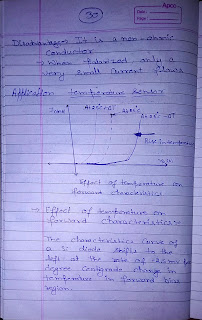 Apco
Date:
Page:
30
Disadvantage: It is a non-ohmic
conductor
→ When polarized only a
very small current flows
Application temperature sensor
Effect of temperature on
forward characteristics
→ Effect of temperature on
forward characteristics:
The characteristics curve of
a Si diode shifts to the
left at the rate of -2.5 mv per
degree centigrade change in
temperature in forward bias
region.